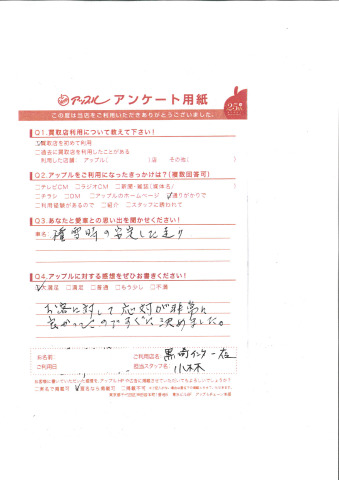 アップル アンケート用紙
25周年
この度は当店をご利用いただきありがとうございました。
Q1.買取店利用について教えて下さい!
☑買取店を初めて利用
□過去に買取店を利用したことがある
利用した店舗: アップル( )店 その他( )
Q2.アップルをご利用になったきっかけは?(複数回答可)
□テレビCM □ラジオCM □新聞・雑誌(媒体名)
□チラシ □DM □アップルのホームページ ☑通りがかりで
□利用経験があるので □紹介 □スタッフに誘われて
Q3.あなたと愛車との思い出を聞かせください!
車名:
積雪時の安定した走り
Q4.アップルに対する感想をぜひお書きください!
☑大満足 □満足 □普通 □もう少し □不満
お客に対して応対が非常に
良かったのですぐに決めました。
お名前: ご利用店名: 黒埼インター店
ご利用日 担当スタッフ名: 小林
お客様に書いていただいた感想を、アップルHPや広告に掲載させていただいてもよろしいでしょうか?
□実名で掲載可 ☑匿名なら掲載可 □掲載不可